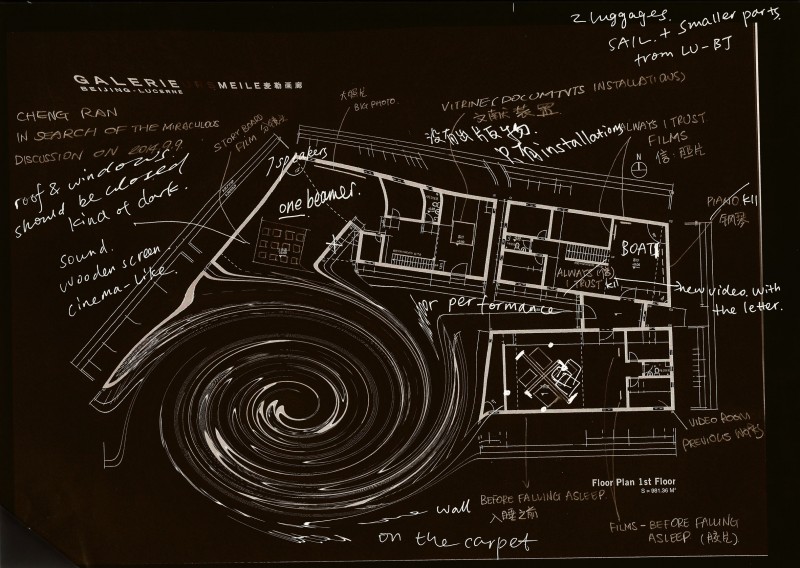 2 luggages.
SAIL. + smaller parts.
from LU-BJ
GALERIE URS MEILE 麦勒画廊
BEIJING-LUCERNE
CHENG RAN
IN SEARCH OF THE MIRACULOUS
DISCUSSION ON
roof & windows.
should be closed
kind of dark.
sound.
wooden screen.
cinema-like.
STORY BOARD
FILM
大照片
BIG PHOTO.
7 speakers
one beamer.
VITRINE (DOCUMTVTS INSTALLATIONS)
文献 装置
没有出版物.
只有installations
ALWAYS I TRUST
FILMS
信·照片
N
PIANO KEY
钢琴
BOAT
ALWAYS (信)
I TRUST
new video with
the letter.
for performance
VIDEO ROOM
PREVIOUS WORKS
Floor Plan 1st Floor
S = 981.36 M²
wall
BEFORE FALLING ASLEEP.
入睡之前
on the carpet
FILMS - BEFORE FALLING
ASLEEP (胶片)